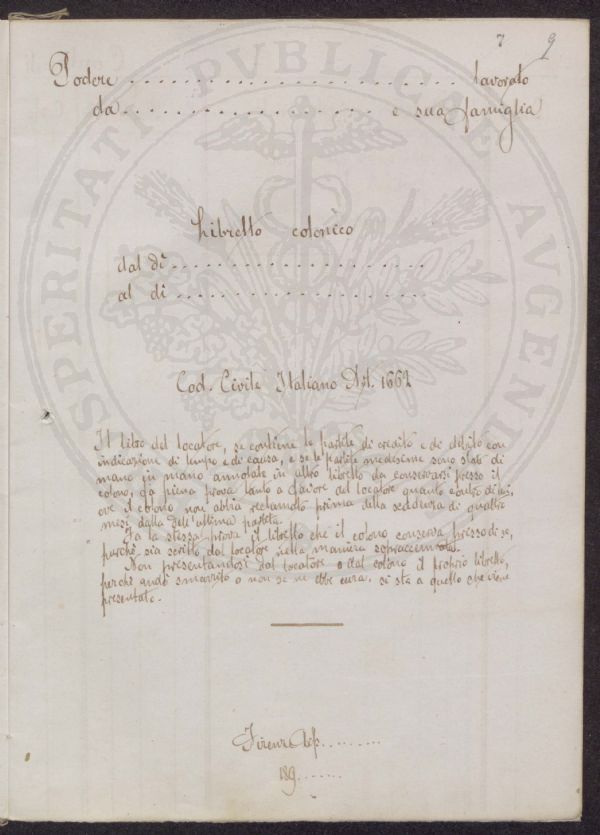 7 9
Podere . . . . . . . . . . . . . . . . . . . . . . . lavorato
da . . . . . . . . . . . . . . . . . . e sua famiglia
Libretto colonico
dal dì . . . . . . . . . . . . . . . . . . .
al dì . . . . . . . . . . . . . . . . . . .
Cod. Civile Italiano Art. 1662
Il libro del locatore, se contiene le partite di credito e di debito con
indicazione di tempo e di causa, e se le partite medesime sono state di
mano in mano annotate in altro libretto da conservarsi presso il
colono, fa piena prova tanto a favore del locatore quanto contro di lui,
ove il colono non abbia reclamato prima della scadenza di quattro
mesi dalla dell'ultima partita.
Fa la stessa prova il libretto che il colono conserva presso di se,
purchè sia scritto dal locatore nella maniera sopraccennata.
Non presentandosi dal locatore o dal colono il proprio libretto,
perchè andò smarrito o non se ne ebbe cura, si sta a quello che viene
presentato.
Firenze
189 . . . . . .
SPERITATI PVBLICAE AVGENDAE